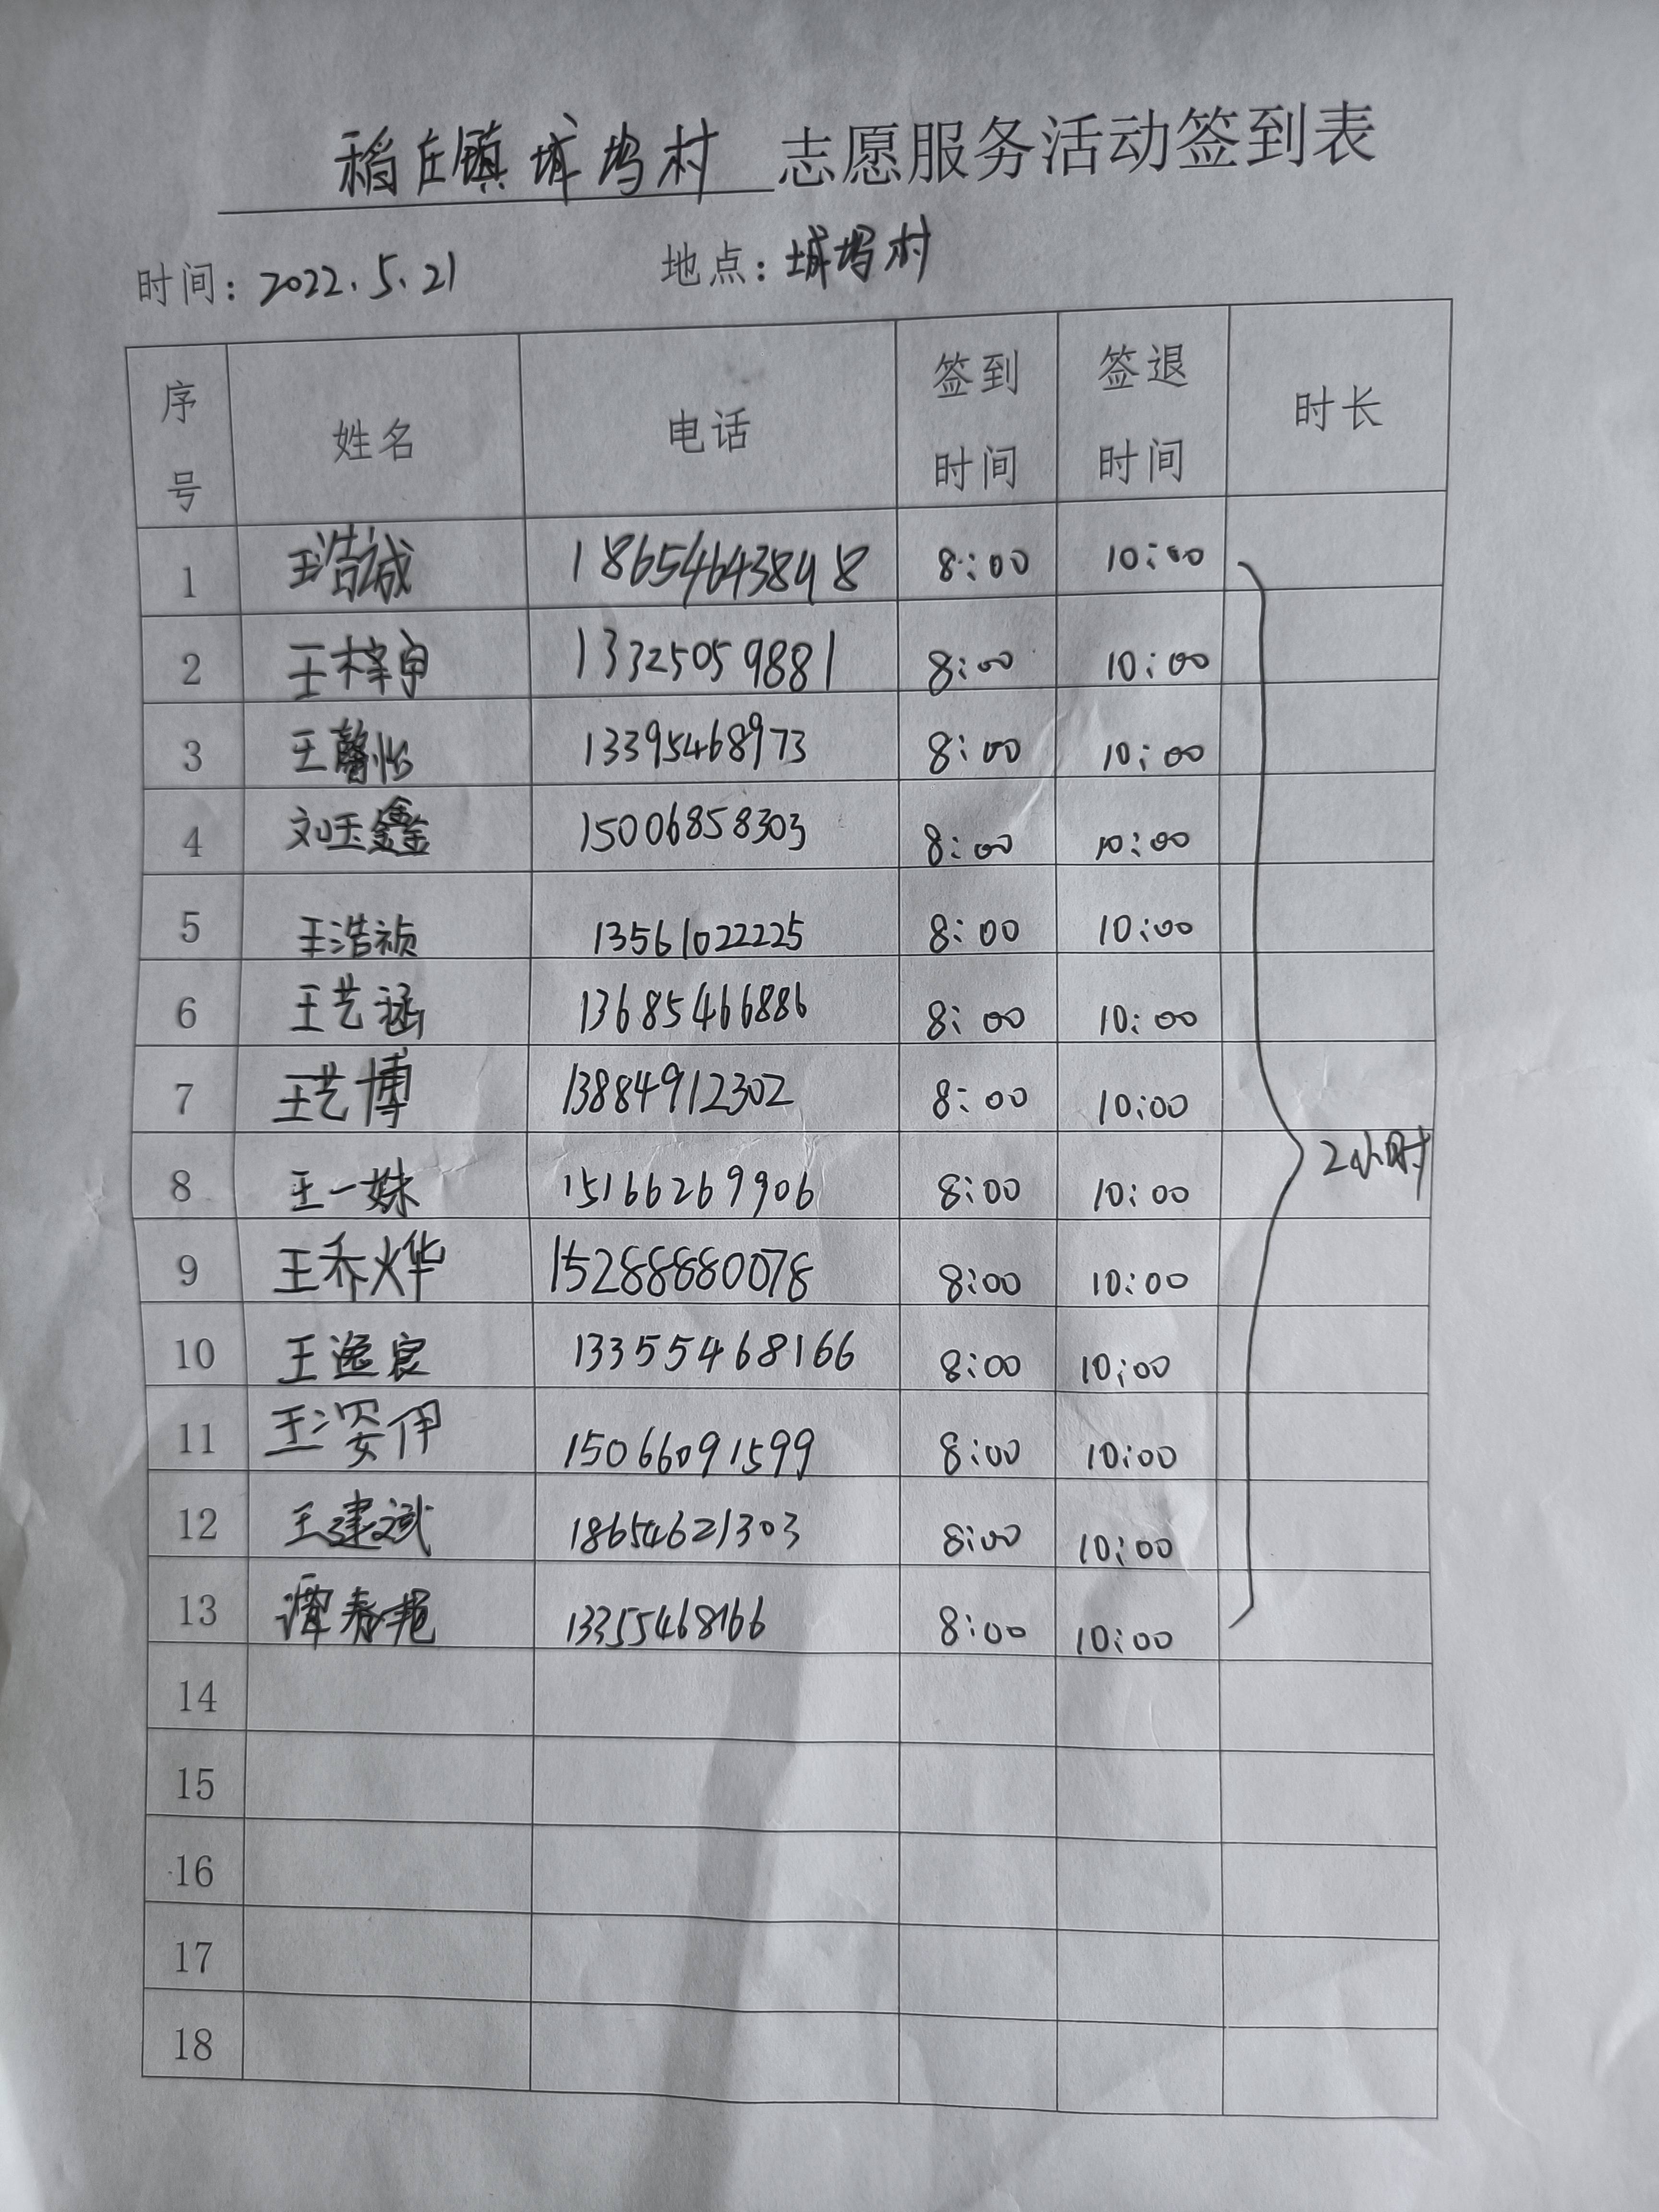 稻庄镇城坞村 志愿服务活动签到表
时间：2022.5.21 地点：城坞村
序号 姓名 电话 签到时间 签退时间 时长
1 王浩诚 18654643848 8:00 10:00
2 王梓 13325059881 8:00 10:00
3 王馨怡 13395468973 8:00 10:00
4 刘玉鑫 15006858303 8:00 10:00
5 王浩祯 13561022225 8:00 10:00
6 王艺涵 13685466886 8:00 10:00
7 王艺博 13884912302 8:00 10:00
8 王一姝 15166269906 8:00 10:00 2小时
9 王乔烨 15288880078 8:00 10:00
10 王逸宸 13355468166 8:00 10:00
11 王姿伊 15066091599 8:00 10:00
12 王建斌 18654621303 8:00 10:00
13 谭春艳 13355468166 8:00 10:00
14
15
16
17
18